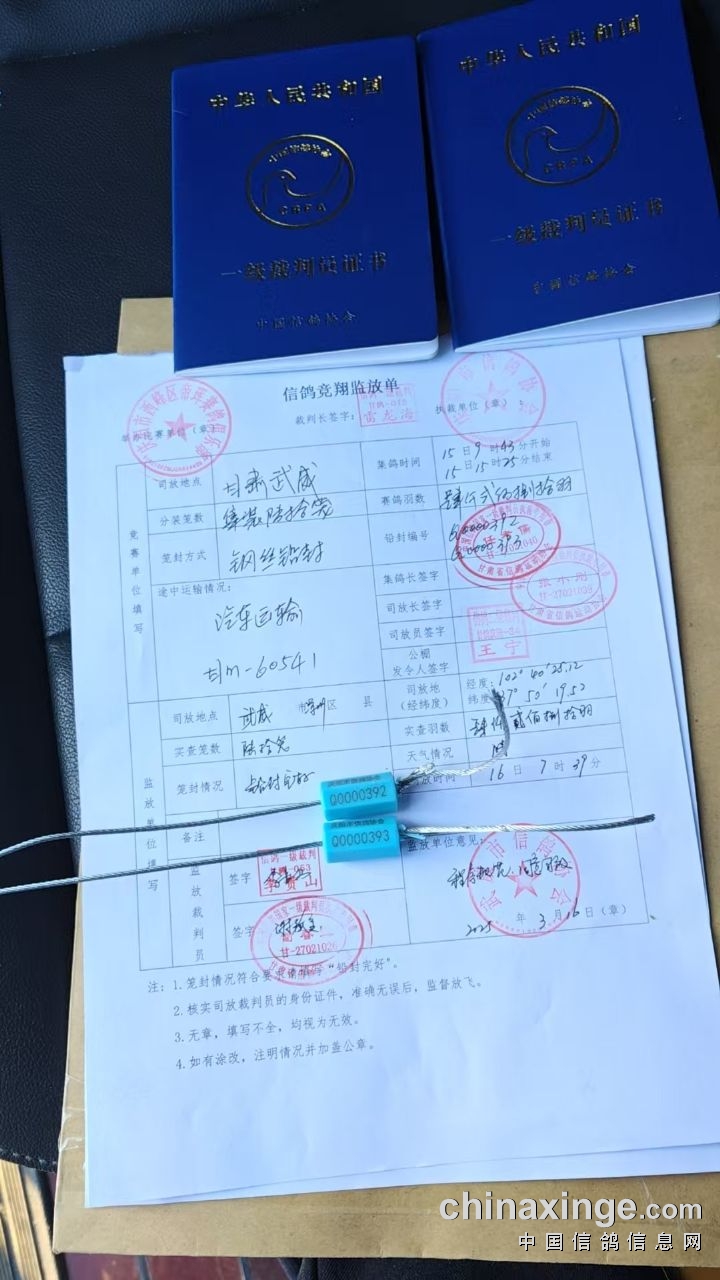 中华人民共和国
中国信鸽协会
CRPA
一级裁判员证书
中国信鸽协会
中华人民共和国
中国信鸽协会
CRPA
一级裁判员证书
中国信鸽协会
信鸽竞翔监放单
裁判长签字:
雷龙海
执裁单位(章):
举办比赛单位(章)
竞赛单位填写
司放地点
甘肃武威
集鸽时间
15日9时43分开始
15日15时25分结束
分装笼数
赛鸽羽数
笼封方式
钢丝铅封
铅封编号
Q0000392
Q0000393
途中运输情况:
汽车运输
甘M-60541
集鸽长签字
司放长签字
司放员签字
王宁
公棚
发令人签字
监放单位填写
司放地点
武威 市 区 县
司放地
(经纬度)
经度:102° 40′ 25.12
纬度 37° 50′ 19.52
实查笼数
陆拾笼
实查羽数
肆仟贰佰捌拾羽
笼封情况
铅封完好
天气情况
晴
放时间
16日7时39分
Q0000392
Q0000393
备注
监放裁判员
签字
信鸽一级裁判
李贵山
签字
甘-27021026
监放单位意见:
2025年3月16日(章)
注:1.笼封情况符合要求请填写“铅封完好”。
2.核实司放裁判员的身份证件,准确无误后,监督放飞。
3.无章,填写不全,均视为无效。
4.如有涂改,注明情况并加盖公章。
chinaxinge.com
中国信鸽信息网